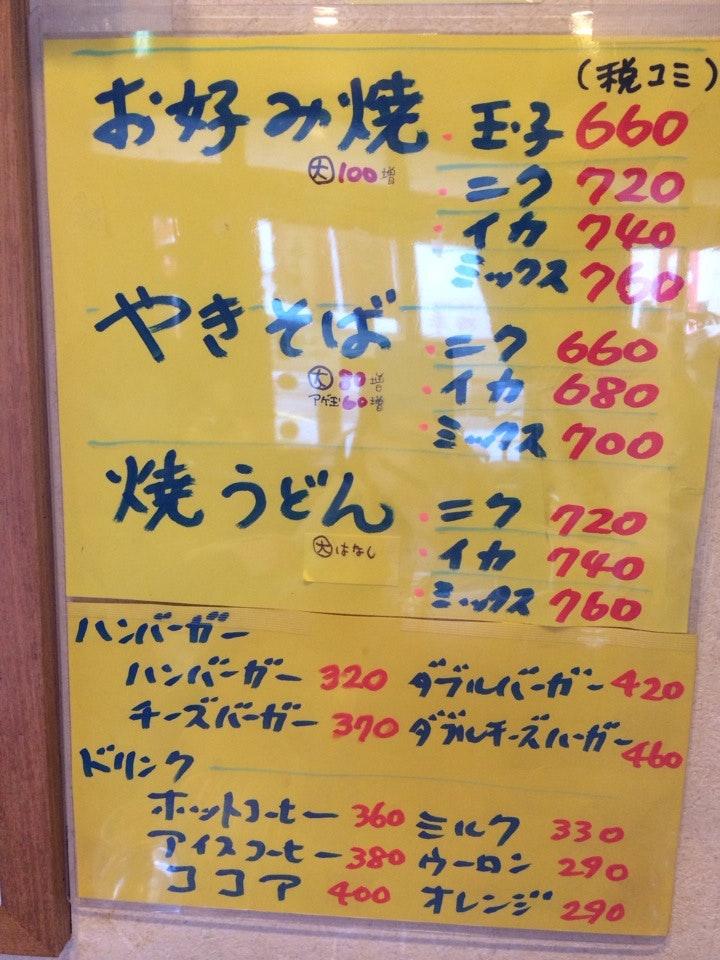 (税コミ)
お好み焼 ・玉子 660
大 100増 ・ニク 720
・イカ 740
・ミックス 760
やきそば ・ニク 660
大 80増 ・イカ 680
アゲ玉 60増
・ミックス 700
焼うどん ・ニク 720
大はなし ・イカ 740
・ミックス 760
ハンバーガー
ハンバーガー 320 ダブルバーガー 420
チーズバーガー 370 ダブルチーズバーガー 460
ドリンク
ホットコーヒー 360 ミルク 330
アイスコーヒー 380 ウーロン 290
ココア 400 オレンジ 290